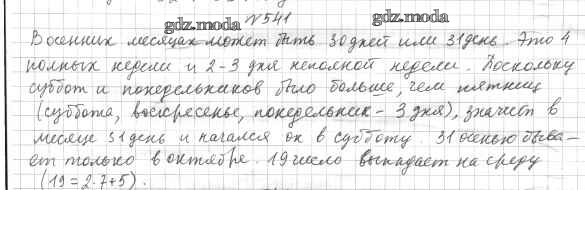 gdz.moda №541 gdz.moda
В осенних месяцах может быть 30 дней или 31 день. Это 4
полных недели и 2-3 дня неполной недели. Поскольку
суббот и понедельников было больше, чем пятниц
(суббота, воскресенье, понедельник - 3 дня), значит в
месяце 31 день и начался он в субботу. 31 осенью быва-
ет только в октябре. 19 число выпадает на среду
(19 = 2·7+5).